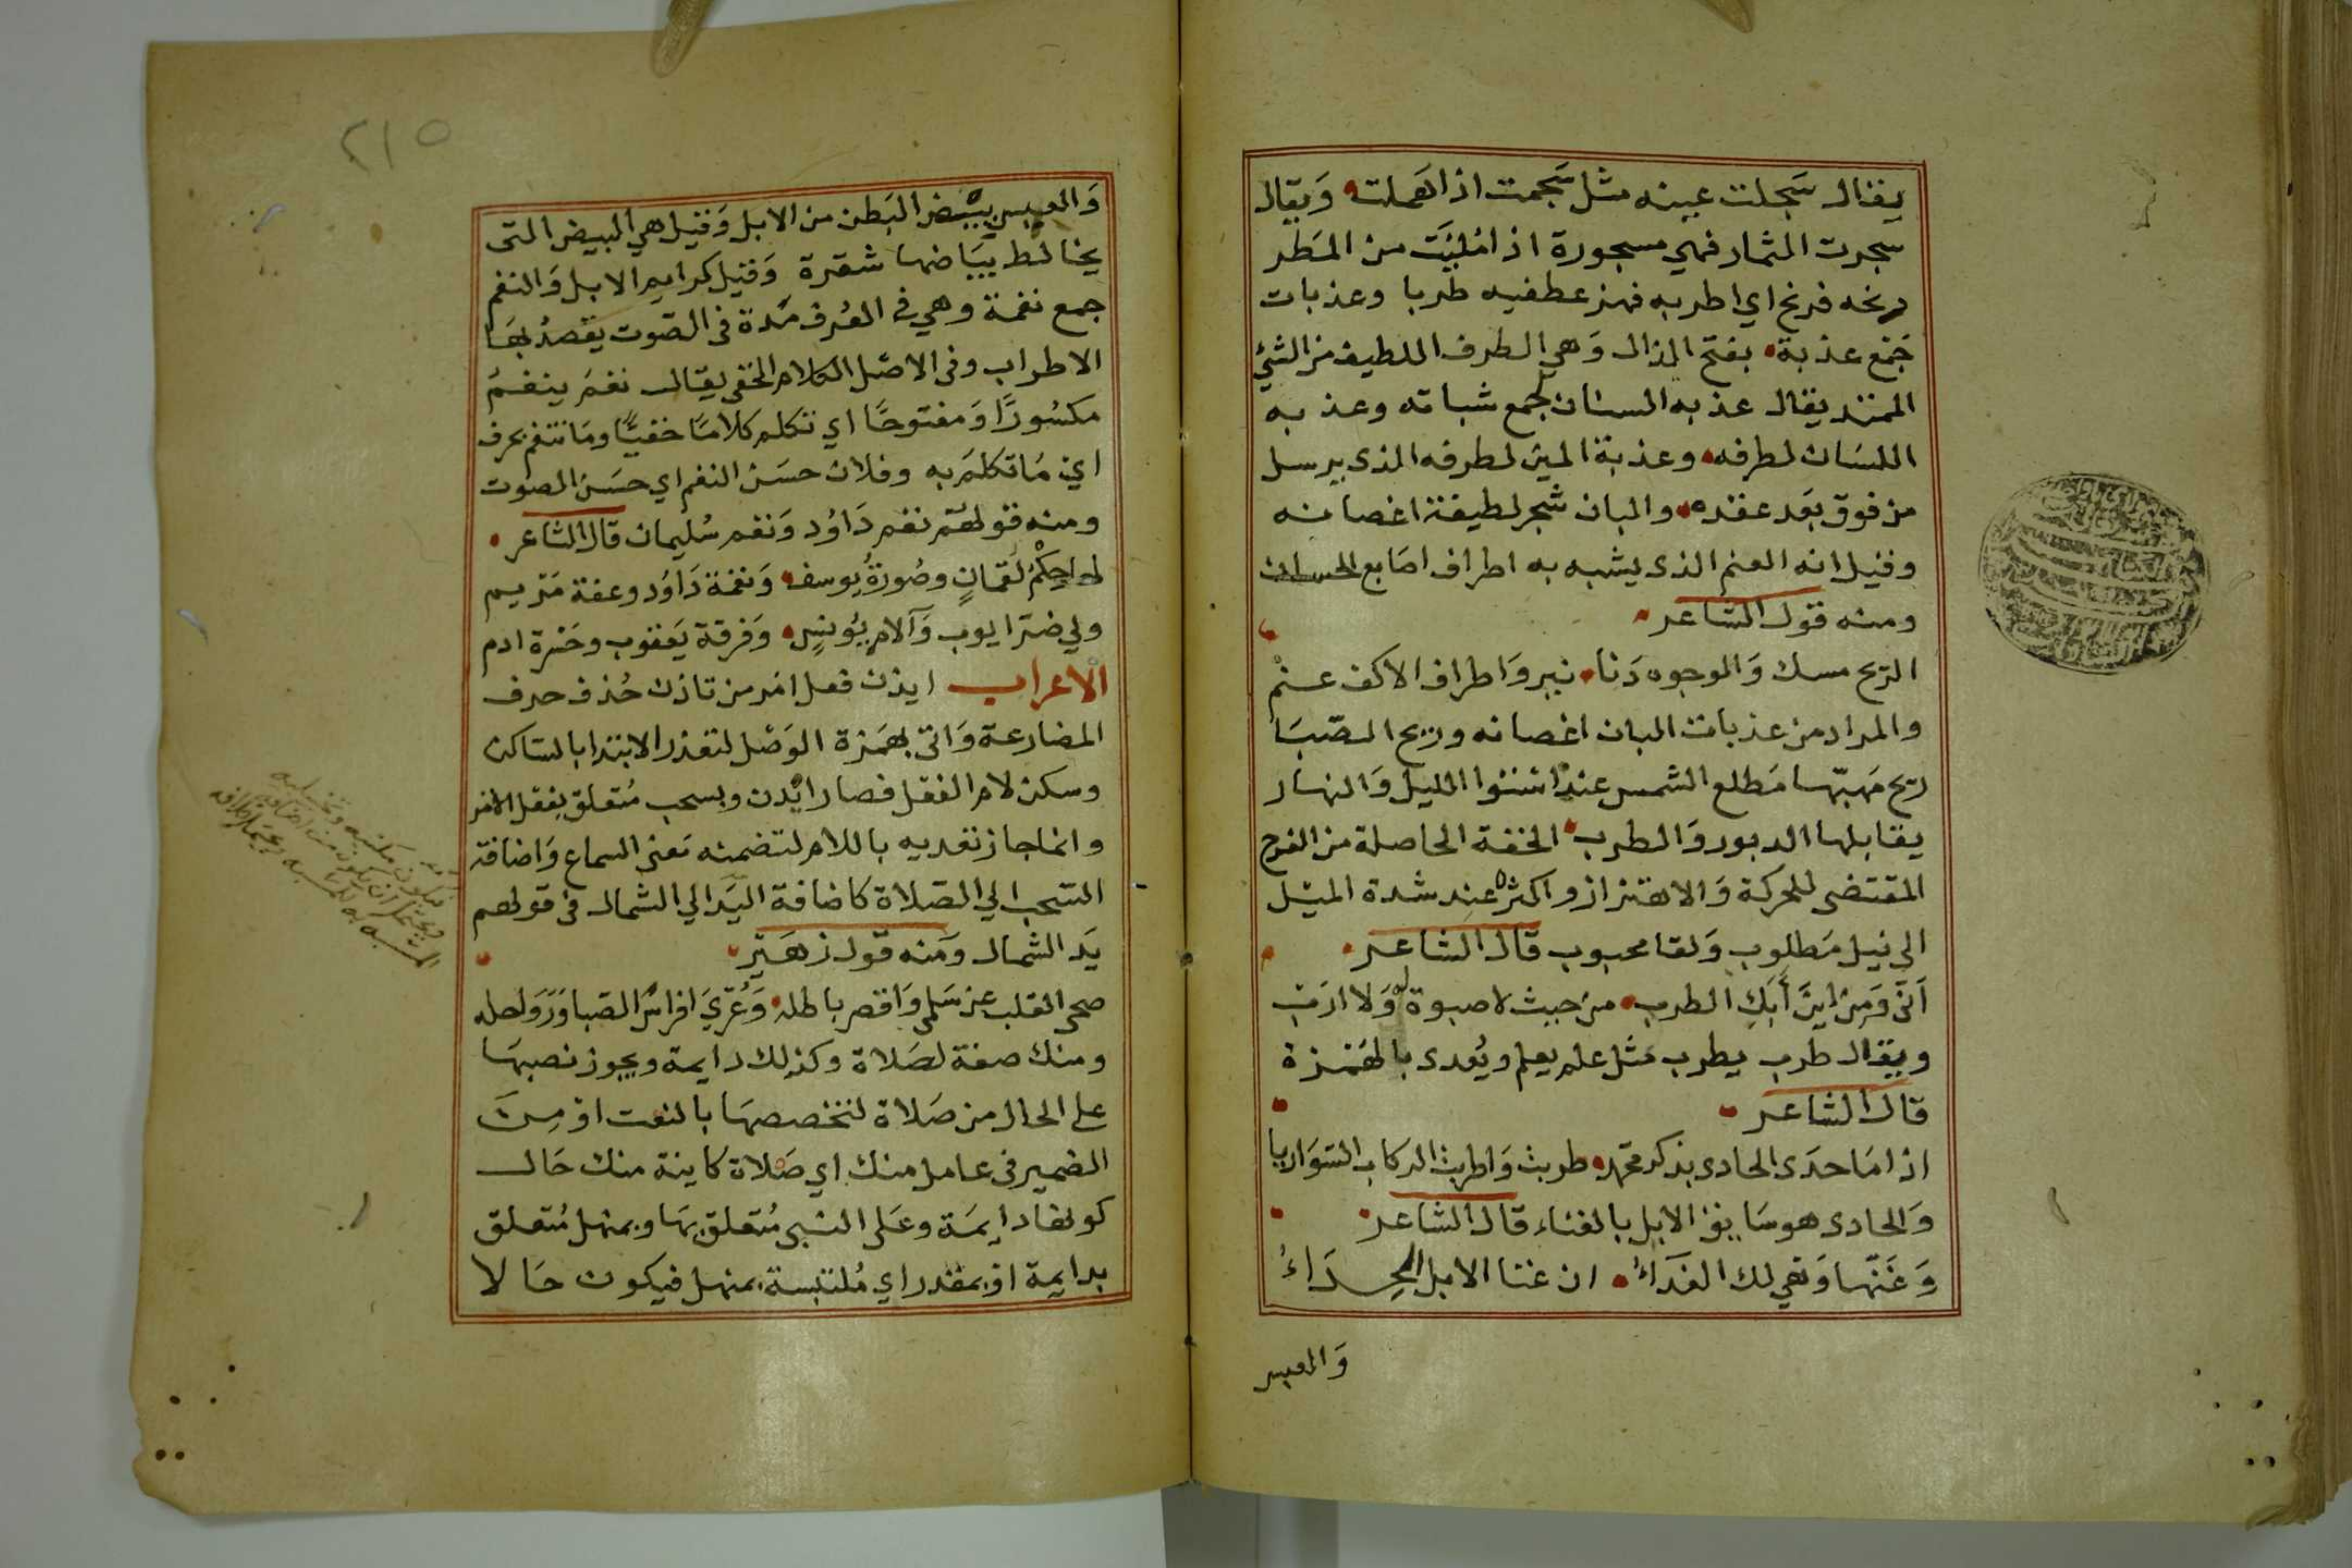 يقال سجلت عينه مثل سجمت اذا هملت وَيقال
سجرت الثمار فهي مسجورة اذا امليَت من المَطر
رنحه فرنح اي اطربه فهز عطفيه طربا وعذبات
جَمع عذبة بفتح الذال وَهي الطرف اللطيف من الشئ
الممتد يقال عذبه السنان لجمع شباته وعذبه
اللسَان لطرفه وعذبة الميز لطرفه الذى يرسل
من فوق بَعد عقده والبان شجر لطيفة اغصانه
وقيل انه العنم الذى يشبه به اطراف اصَابع الحسان
ومنه قول الشاعر
الريح مسك وَالوجوه دَنا نير وَاطراف الاكف عنم
والمراد من عذبات البان اغصانه وريح الصّبَا
ريح مَهبّها مَطلع الشمس عند استوا الليل وَالنهار
يقابلها الدبور وَالطرب الخفة الحاصلة من الفرح
المقتضى للحركة وَالاهتزاز واكثره عند شدة الميْل
الى نيل مَطلوب وَلقا محبوب قال الشاعر
اَنّى وَمِن اينَ أَبَكِ الطرب من حيث لا صبوة وَلا ارَب
ويقال طرب يطرب مثل علم يعلم ويُعدى بالهَمزة
قال الشاعر
اذا مَا حدَى الحادى بذكر محمّد طربت وَاطربت الركاب السّوَاريا
وَالحادى هو سَايق الابل بالغناء قال الشاعر
وَغَنّها وَهي لك الفدَاءُ ان غنا الابل الحِدَاءُ
وَالعيس
٢١٥
وَالعيس بيْض البَطن من الابل وَقيل هي البيض التى
يخالط بيَاضها شقرة وَقيل كرايم الابل وَالنغم
جمع نغمة وهي في العُرف مَدة فى الصّوت يقصدُ بهَا
الاطراب وفى الاصْل الكلام الخفى يقال نغمَ ينغمُ
مكسُورًا وَمفتوحًا اي تكلم كلامًا خفيًّا ومَا تنغم بحرف
اي مَا تكلمَ به وفلان حسَن النغم اي حسَن الصوت
ومنه قولهُم نغم دَاوُد وَنغم سُليمان قال الشاعر
لها حِكْمُ لُقمانٍ وصُورةُ يوسف وَنغمة دَاوُد وعفة مَريم
ولي ضرّ ايوب وَآلام يُونسٍ وَفرقة يَعقوب وحَسْرة ادم
الاعراب ايذن فعل امَر من تاذن حُذف حرف
المضارعة وَاتى بهَمزة الوَصْل لتعذر الابتدا بالسّاكن
وسكن لام الفعْل فصار ايْذن وبسحب مُتعلق بفعْل الامْر
وانما جاز تعديه باللام لتضمنه مَعنى السماع وَاضافة
السّحب الي الصّلاة كاضافة اليَد الي الشمال فى قولهم
يَد الشمال وَمنه قول زهَيْر
صحى القلب عن سَلمى وَاقصر باطله وَعُرّيَ افراسُ الصّبا وَرَوَاحله
ومنك صفة لصَلاة وكذلك دايمة ويجوز نصبهَا
على الحال من صَلاة لتخصصهَا بالنعت اوْ مِنَ
الضمير فى عامل منك اي صَلاة كاينة منك حَال
كونها دايمَة وعَلى النبى مُتعلق بهَا وبمنهل مُتعلق
بدايمة اوْ بمقدر اي مُلتبسة بمنهل فيكون حَالا